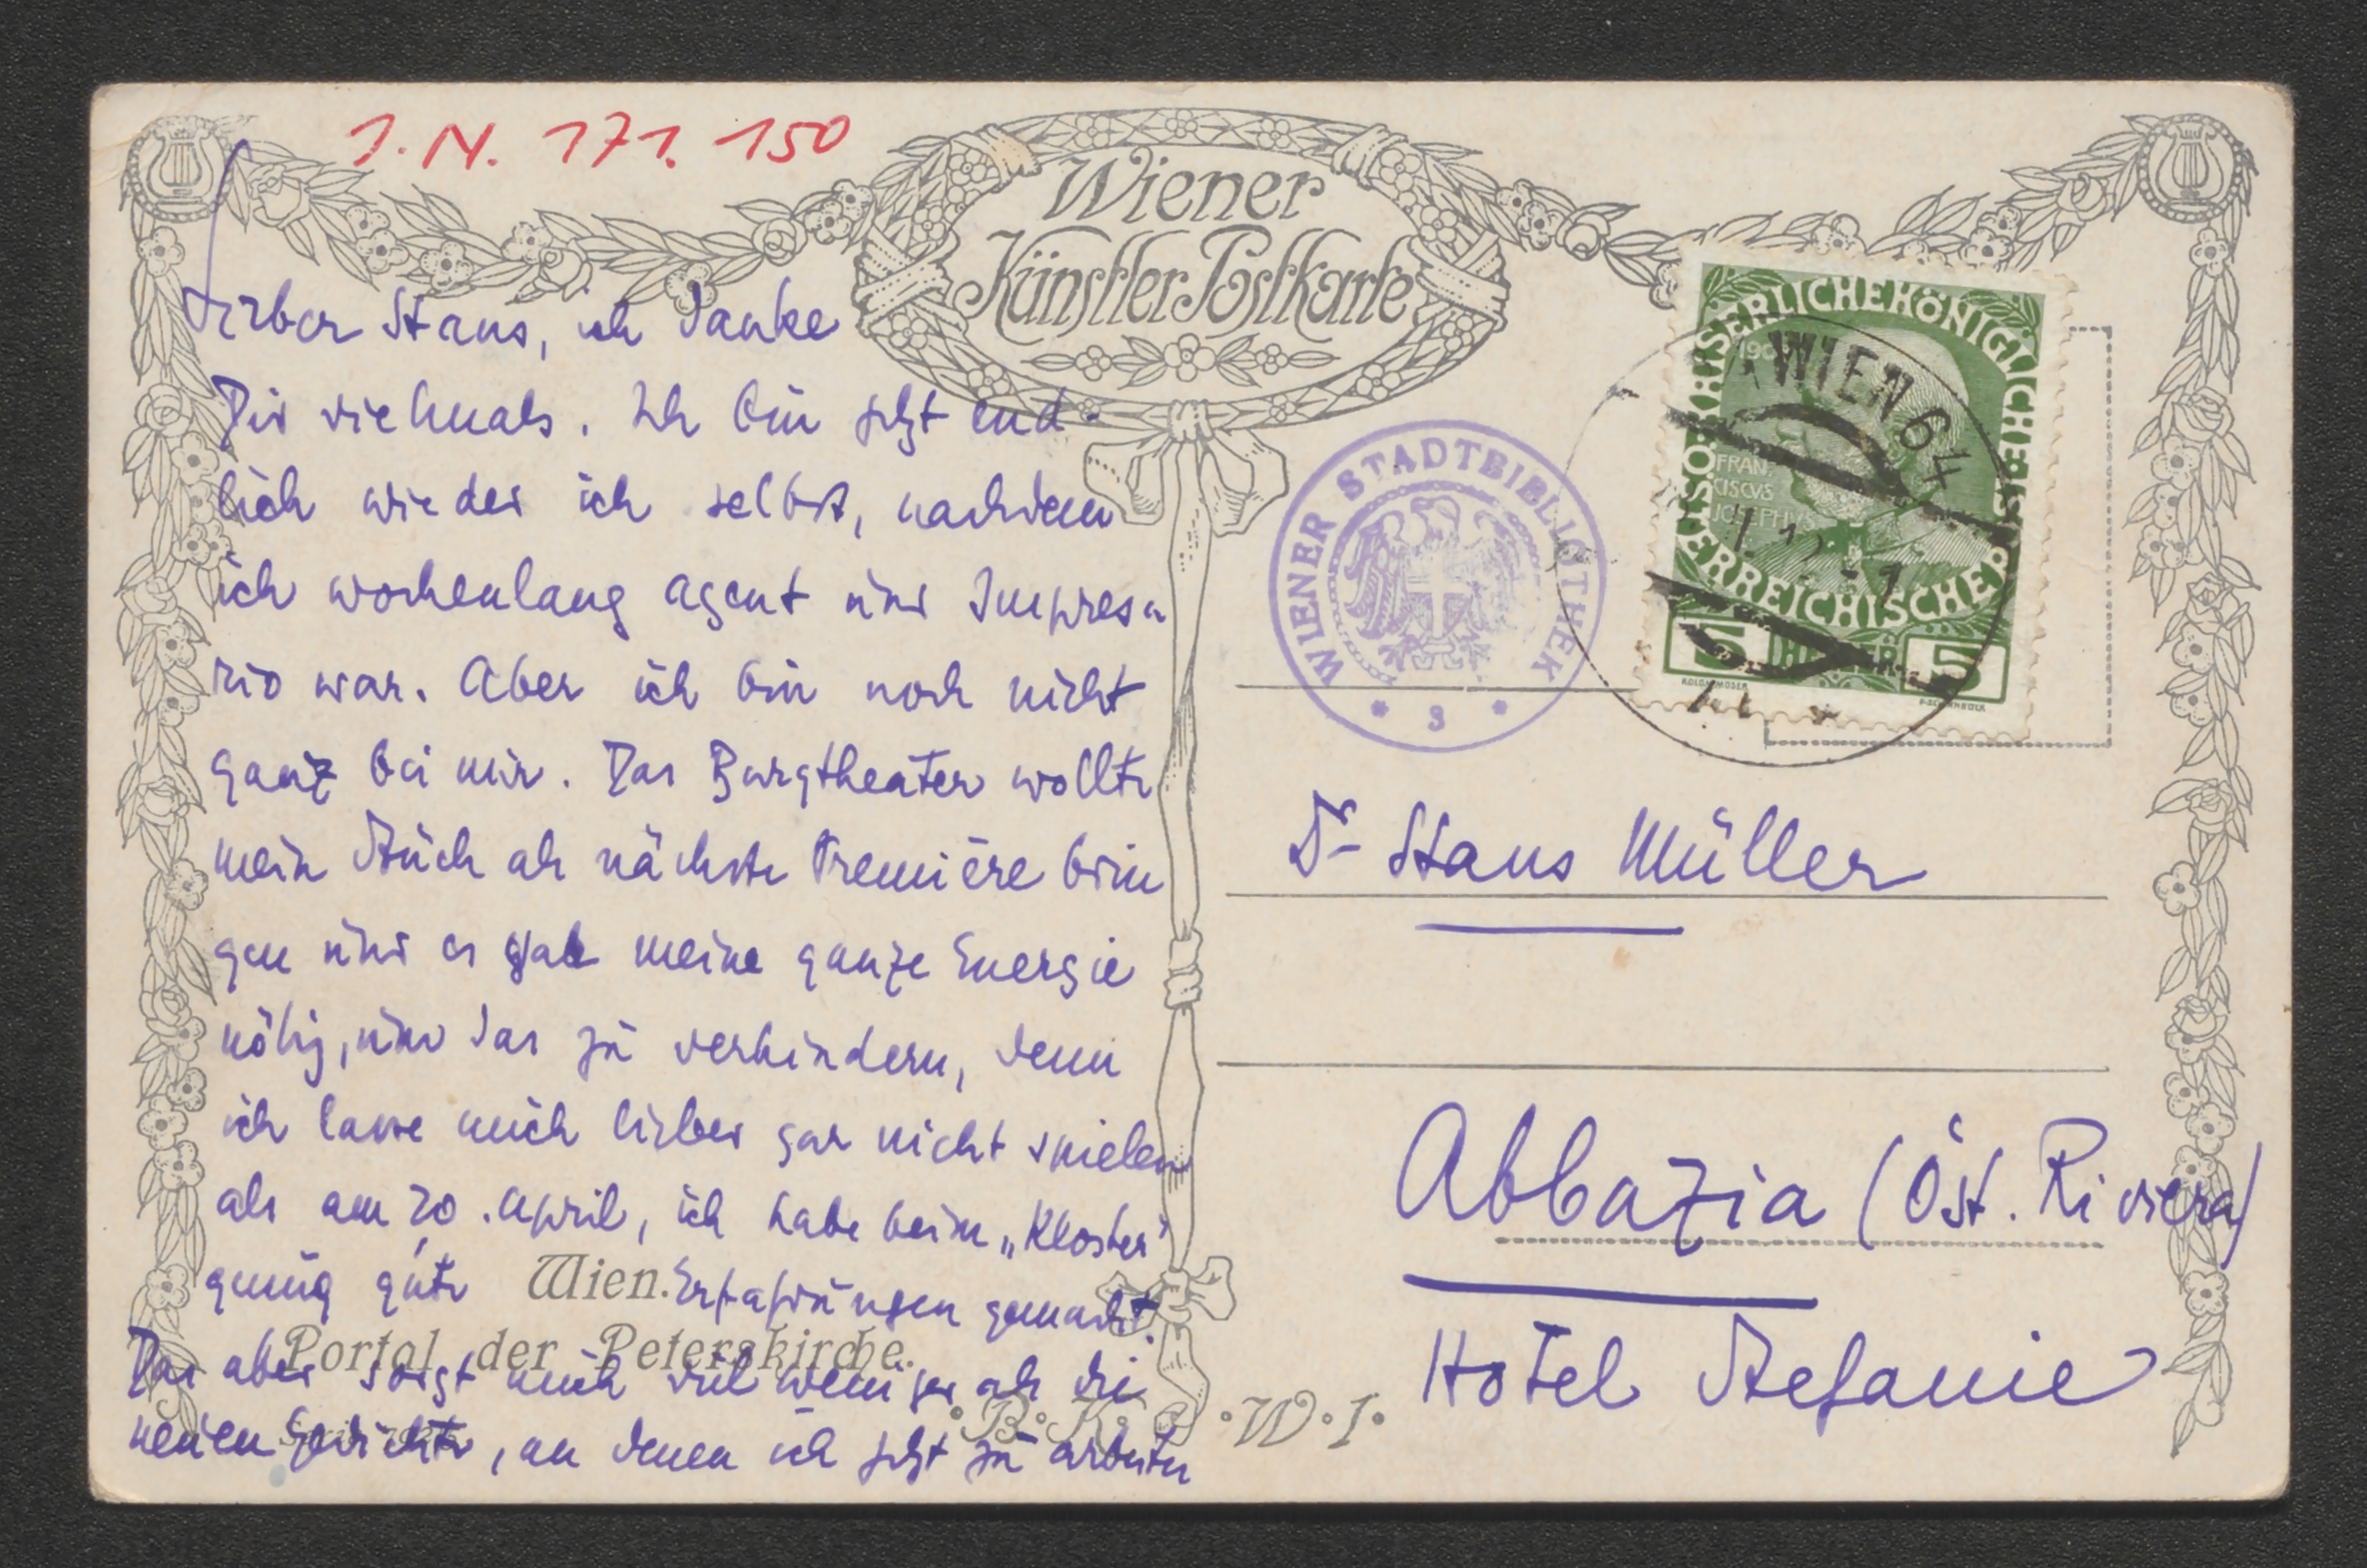 I. N. 171. 150
Wiener
Künstler Postkarte
Lieber Hans, ich danke
Dir vielmals. Ich bin jetzt end-
lich wieder ich selbst, nachdem
ich wochenlang Agent und Impresa
rio war. Aber ich bin noch nicht
ganz bei mir. Das Burgtheater wollte
mein Stück als nächste Première brin
gen und es gab meine ganze Energie
nötig, um das zu verhindern, denn
ich lasse mich lieber gar nicht spielen
als am 20. April, ich habe beim „Kloster"
genug gute Erfahrungen gemacht.
Das aber sorgt mich viel weniger als die
neuen Gedichte, an denen ich jetzt zu arbeiten
Wien.
Portal der Peterskirche.
·B·K·W·I·
WIENER STADTBIBLIOTHEK
* 3 *
KAISERLICHE KÖNIGLICHE
ÖSTERREICHISCHE
FRAN
CISCVS
JOSEPHVS
5 HELLER 5
KOLO MOSER
WIEN 64
Dr Hans Müller
Abbazia (Öst. Riviera)
Hotel Stefanie